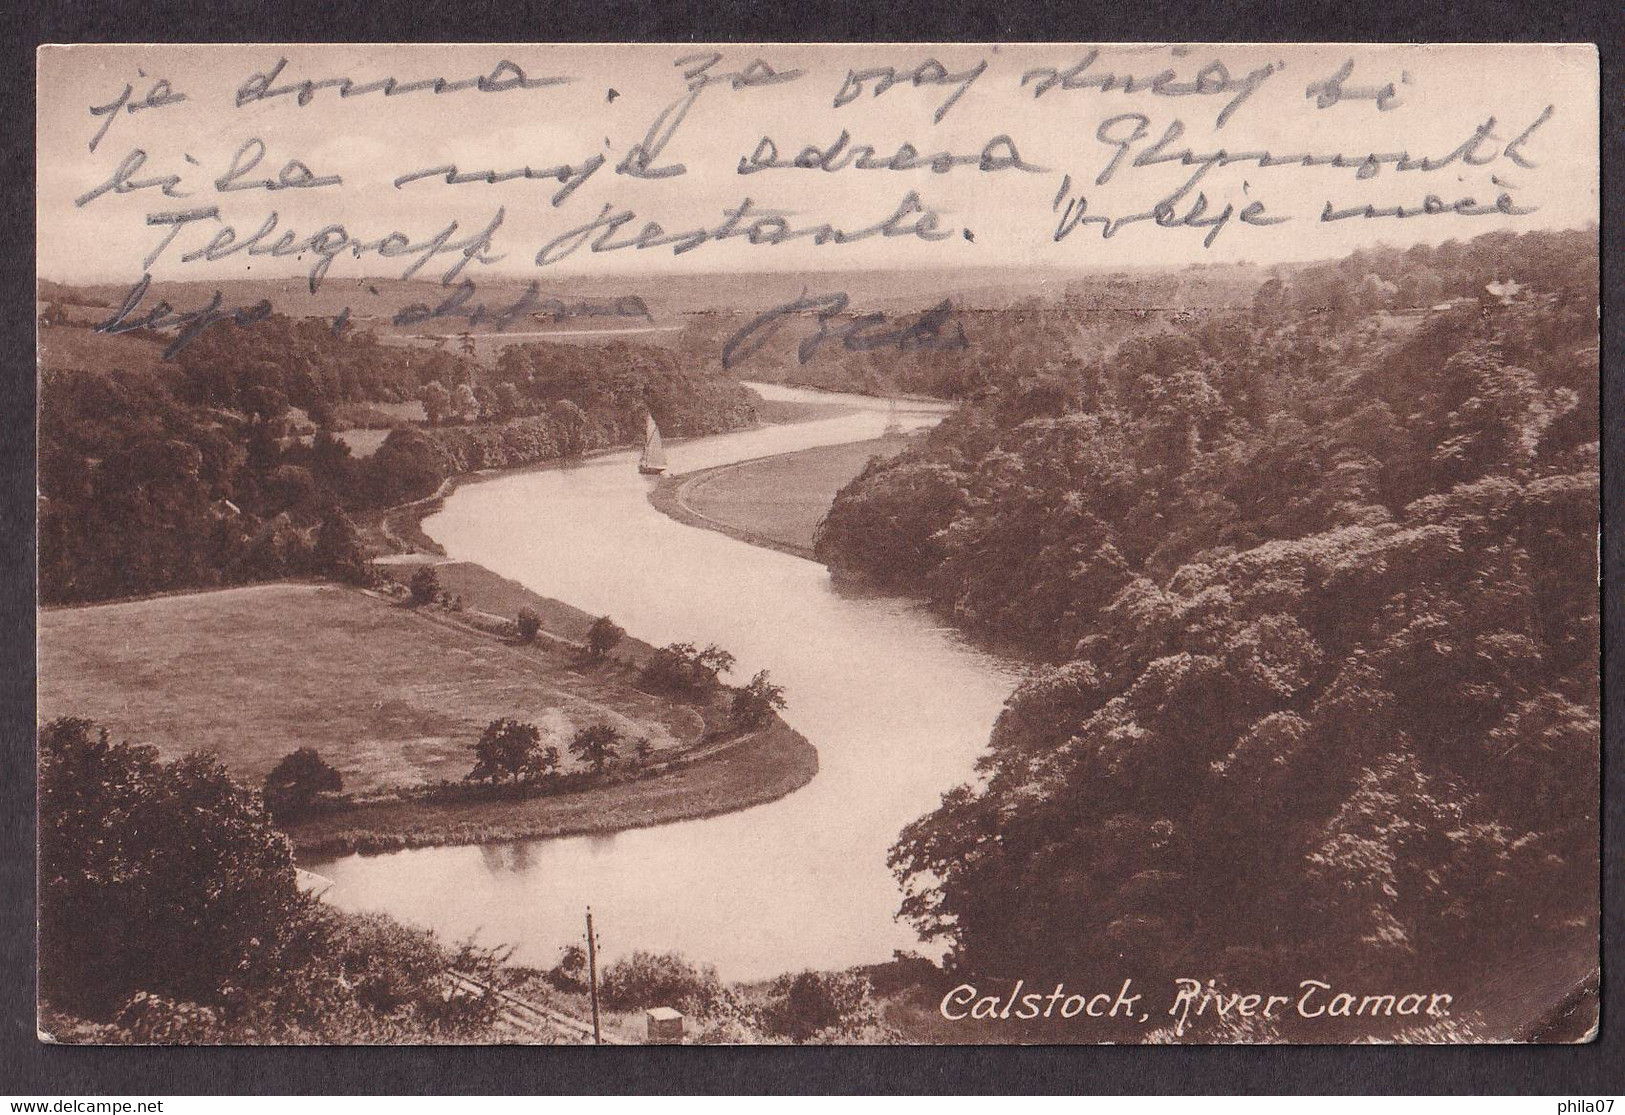 je doma. Za vsaj slučaj bi
bila moja adresa Plymouth
Telegraph Restante. Vrelje moče
lepo i dobro
Calstock, River Tamar.
www.delcampe.net
phila07